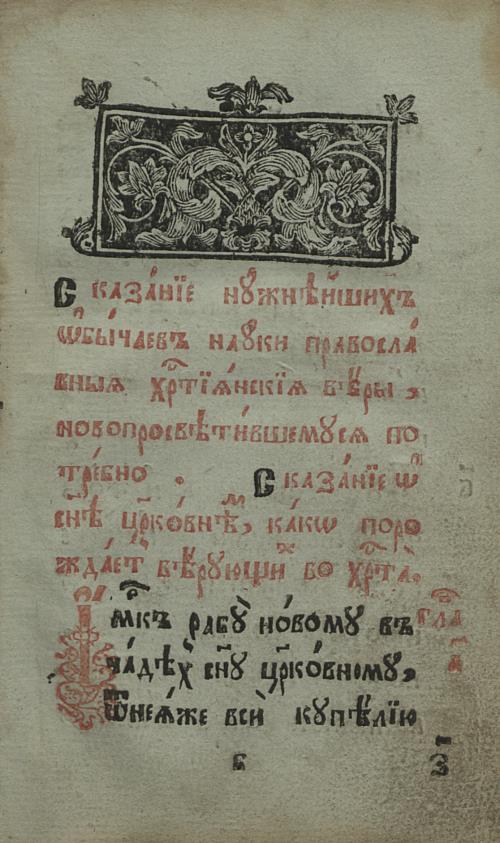 Сказа́нїе нужнѣ́йшихъ
ѡбы́чаевъ науки правосла́
вныѧ хр҇тїѧ́нскїѧ вѣ́ры,
новопросвѣти́вшемусѧ по
тре́бно. Сказа́нїе ѡ
снѣ̀ цр҃ко́внѣмъ, ка́кѡ поро
жда́етъ вѣ́рующиⷯ во хр҇та̀.
рабу̀ но́вому въ
ча́дѣхъ сн҃у цр҃ко́вному,
ѿнеѧ́же всѝ купѣ́лїю
Гла
а҃
Б З